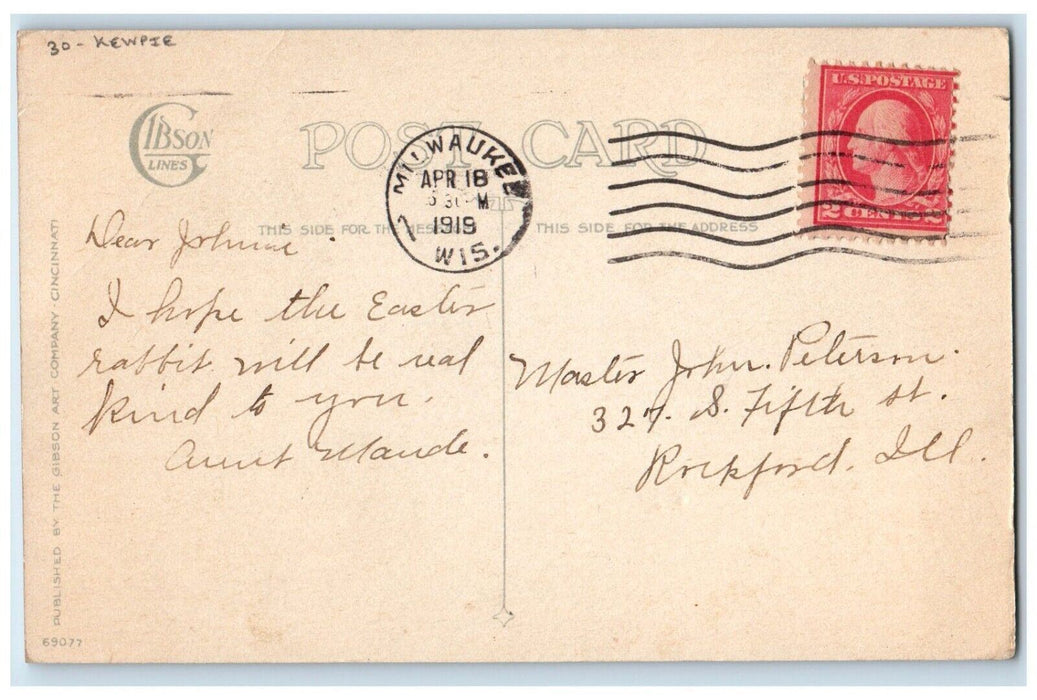 30 - KEWPIE
GIBSON
LINES
POST CARD
MILWAUKEE
APR 18
30 M
1919
WIS.
1
U.S. POSTAGE
2 CENTS 2
THIS SIDE FOR THE MES
THIS SIDE FOR THE ADDRESS
Dear Johnie
I hope the Easter
rabbit will be real
kind to you.
Aunt Maude.
Master John. Peterson.
327. S. Fifth st.
Rockford. Ill.
PUBLISHED BY THE GIBSON ART COMPANY CINCINNATI
69077